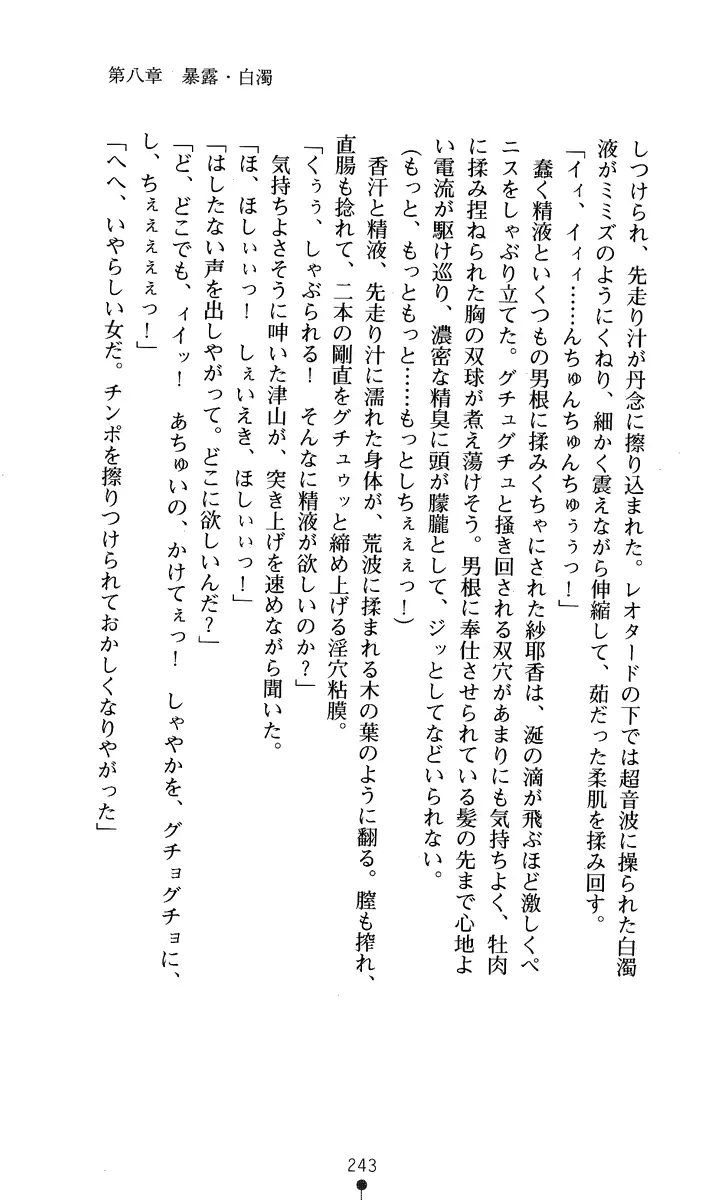 第八章　暴露・白濁
しつけられ、先走り汁が丹念に擦り込まれた。レオタードの下では超音波に操られた白濁
液がミミズのようにくねり、細かく震えながら伸縮して、茹だった柔肌を揉み回す。
「イィ、イィィ……んちゅんちゅんちゅぅぅっ！」
　蠢く精液といくつもの男根に揉みくちゃにされた紗耶香は、涎の滴が飛ぶほど激しくペ
ニスをしゃぶり立てた。グチュグチュと掻き回される双穴があまりにも気持ちよく、牡肉
に揉み捏ねられた胸の双球が煮え蕩けそう。男根に奉仕させられている髪の先まで心地よ
い電流が駆け巡り、濃密な精臭に頭が朦朧として、ジッとしてなどいられない。
（もっと、もっともっと……もっとしちぇぇぇっ！）
　香汗と精液、先走り汁に濡れた身体が、荒波に揉まれる木の葉のように翻る。膣も搾れ、
直腸も捻れて、二本の剛直をグチュゥッと締め上げる淫穴粘膜。
「くぅぅ、しゃぶられる！　そんなに精液が欲しいのか？」
　気持ちよさそうに呻いた津山が、突き上げを速めながら聞いた。
「ほ、ほしぃぃっ！　しぇいえき、ほしぃぃっ！」
「はしたない声を出しやがって。どこに欲しいんだ？」
「ど、どこでも、ィイッ！　あちゅいの、かけてぇっ！　しゃやかを、グチョグチョに、
し、ちぇぇぇぇぇっ！」
「へへ、いやらしい女だ。チンポを擦りつけられておかしくなりやがった」
243